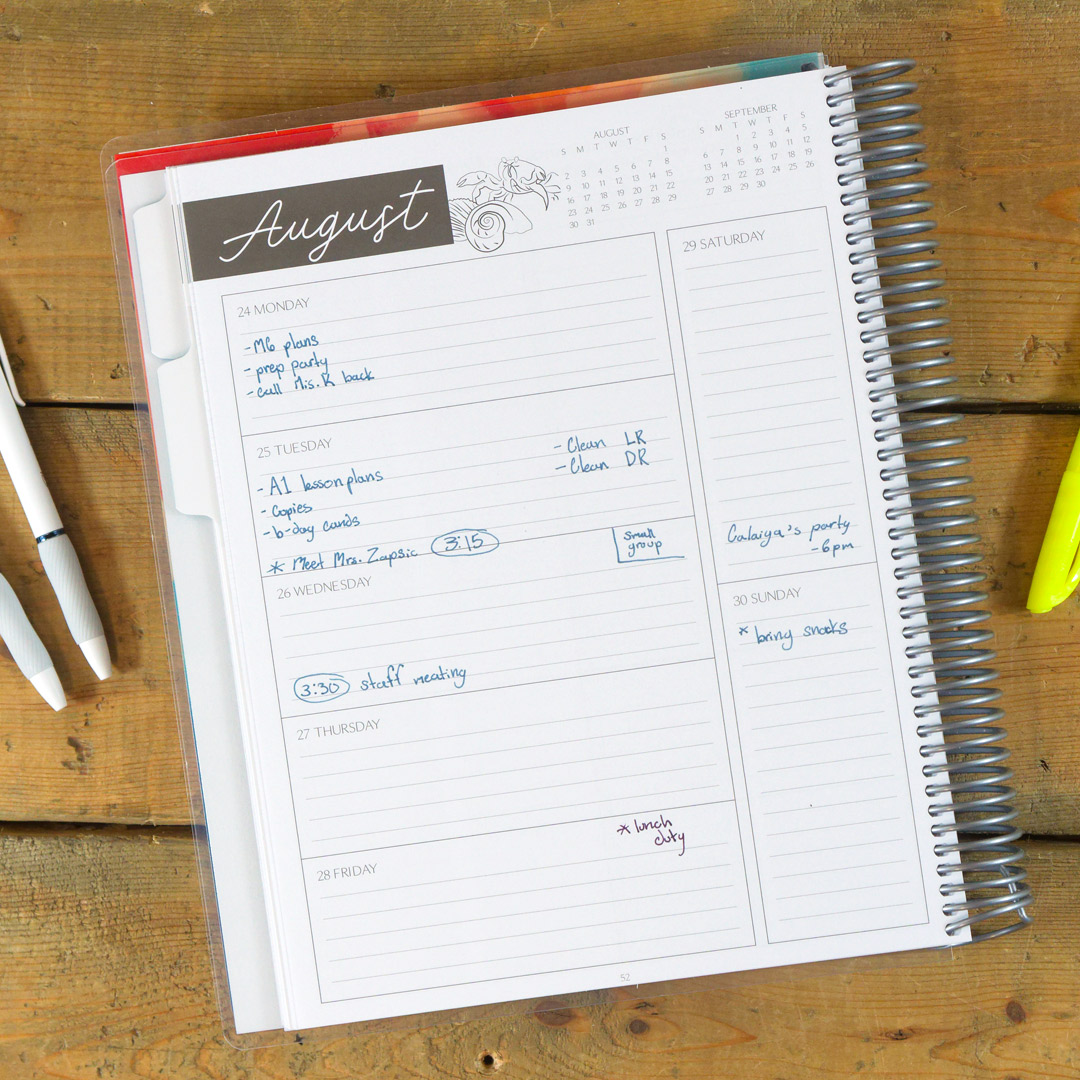 August
AUGUST
S M T W T F S
1
2 3 4 5 6 7 8
9 10 11 12 13 14 15
16 17 18 19 20 21 22
23 24 25 26 27 28 29
30 31
SEPTEMBER
S M T W T F S
1 2 3 4 5
6 7 8 9 10 11 12
13 14 15 16 17 18 19
20 21 22 23 24 25 26
27 28 29 30
24 MONDAY
- M6 plans
- prep party
- call Mis. R back
25 TUESDAY
- A1 lesson plans
- Copies
- b-day cards
* Meet Mrs. Zapsic 3:15
- Clean LR
- Clean DR
small
group
26 WEDNESDAY
3:30 staff meating
27 THURSDAY
* lunch
duty
28 FRIDAY
29 SATURDAY
Calaiya's party
- 6pm
30 SUNDAY
* bring snacks
52